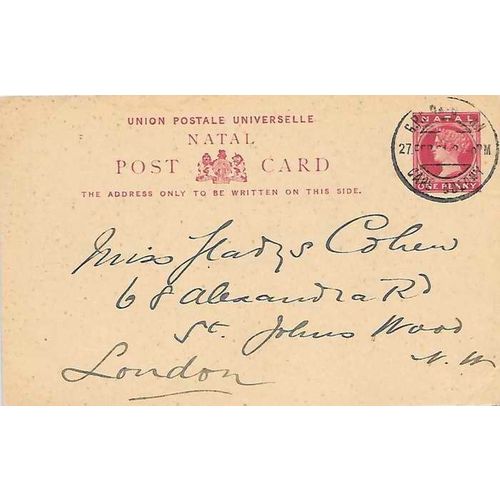 UNION POSTALE UNIVERSELLE
NATAL
POST CARD
THE ADDRESS ONLY TO BE WRITTEN ON THIS SIDE.
NATAL
ONE PENNY
27 FEB
Miss Gladys Cohen
68 Alexandra Rd
St. Johns Wood
N.W
London